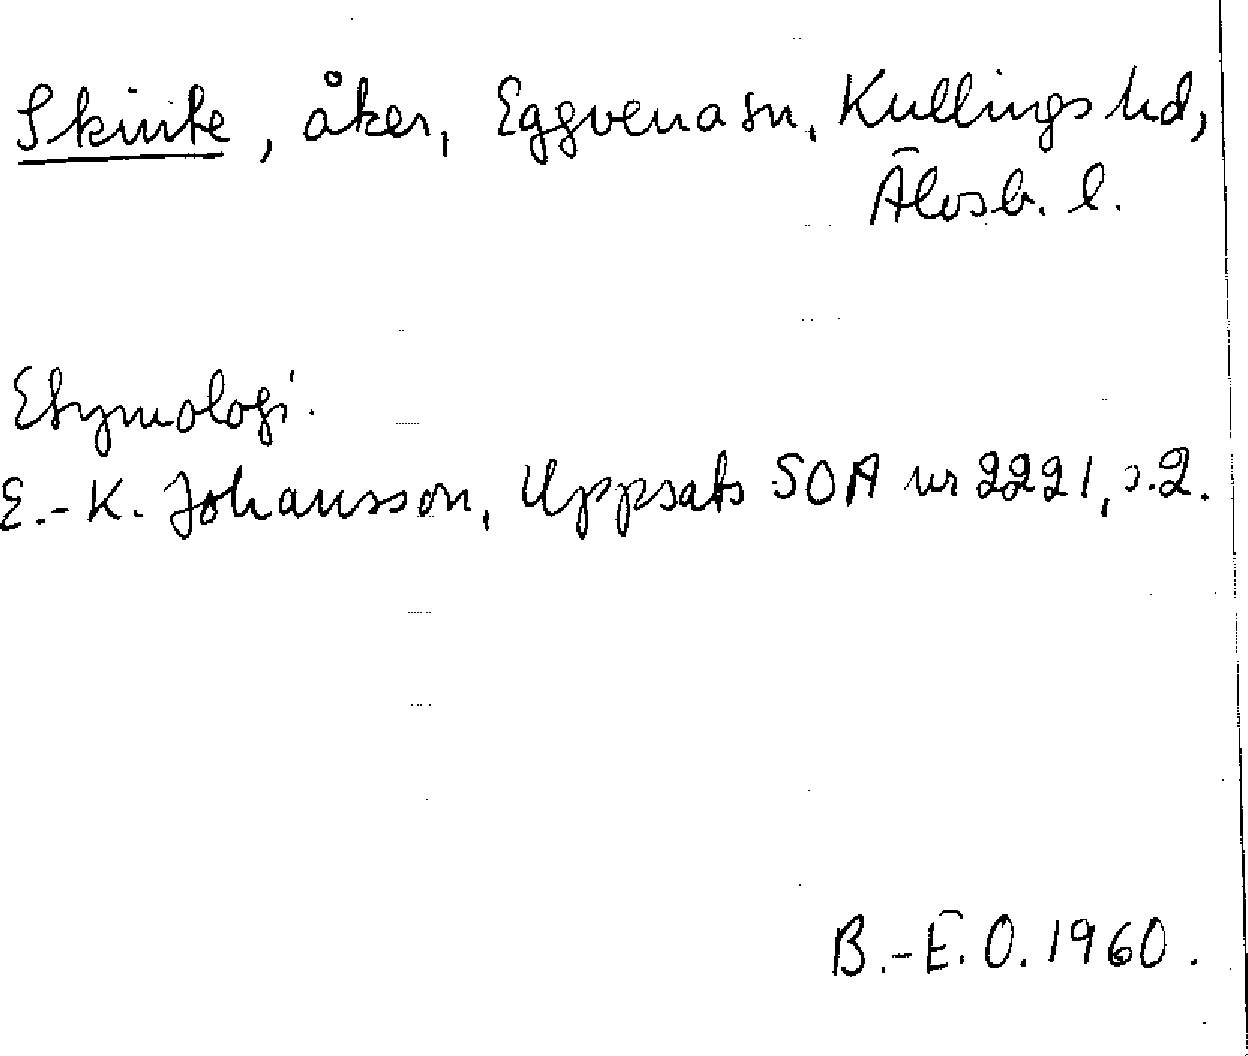 Skinke, åker, Eggvena sn, Kullings hd,
Älvsb. l.
Etymologi.
E.-K. Johansson, Uppsats SOA nr 2221, s. 2.
B.-E. O. 1960.